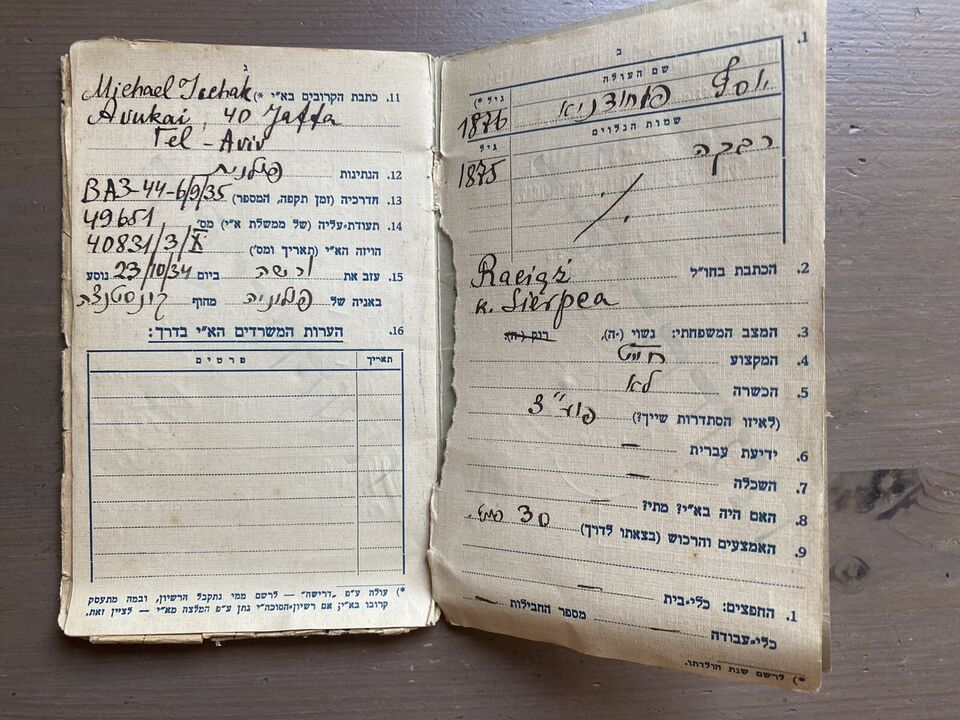 ב
1.
שם העולה
גיל *)
יוסף
1876
שמות הנלוים
גיל
רבקה
1875
2. הכתבת בחו"ל Raciąż
k. Sierpca
3. המצב המשפחתי: נשוי (־ה), רוק (־ה)
4. המקצוע חייט
5. הכשרה לא
(לאיזו הסתדרות שייך?) פוע"צ
6. ידיעת עברית —
7. השכלה —
8. האם היה בא"י? מתי? —
9. האמצעים והרכוש (בצאתו לדרך) 30
1. החפצים: כלי־בית — מספר החבילות —
כלי־עבודה —
*) לרשם שנת הולדתו.
ג
11. כתבת הקרובים בא"י *) Michael Icchak
Avukai, 40 Jaffa
Tel - Aviv
12. הנתינות פולנית
13. הדרכיה (זמן תקפה, המספר) BA3-44-6/9/35
14. תעודת־עליה (של ממשלת א"י) מס' 49651
הויזה הא"י (תאריך ומס') 40831/3/X
15. עזב את ורשה ביום 23/10/34 נוסע
באניה של פולוניה מחוף קונסטנצה
16. הערות המשרדים הא"י בדרך:
תאריך
פרטים
*) עולה ע"פ „דרישה" — לרשם ממי נתקבל הרשיון, ובמה מתעסק
קרובו בא"י; אם רשיון־הסוכה"י נתן ע"פ המלצה מא"י — לציין זאת.